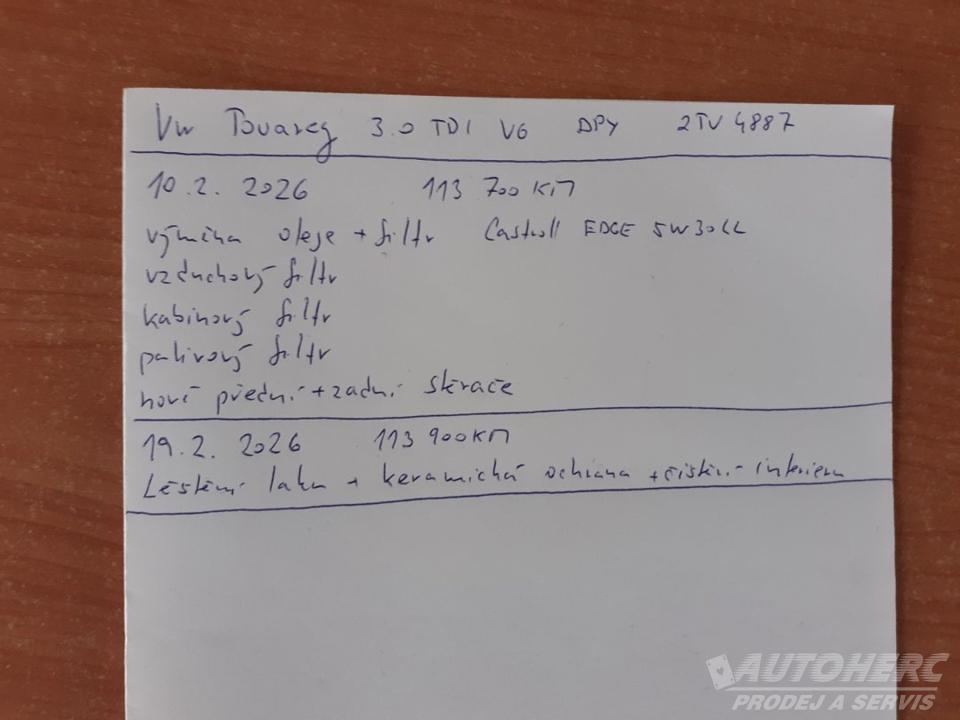 VW Touareg 3.0 TDI V6 DPY 2TV 4887
10.2. 2026 113 700 KM
výměna oleje + filtr Castroll EDGE 5W30LL
vzduchový filtr
kabinový filtr
palivový filtr
nové přední + zadní stěrače
19.2. 2026 113 900KM
Leštění laku + keramická ochrana + čištění interieru
AUTOHERC
PRODEJ A SERVIS